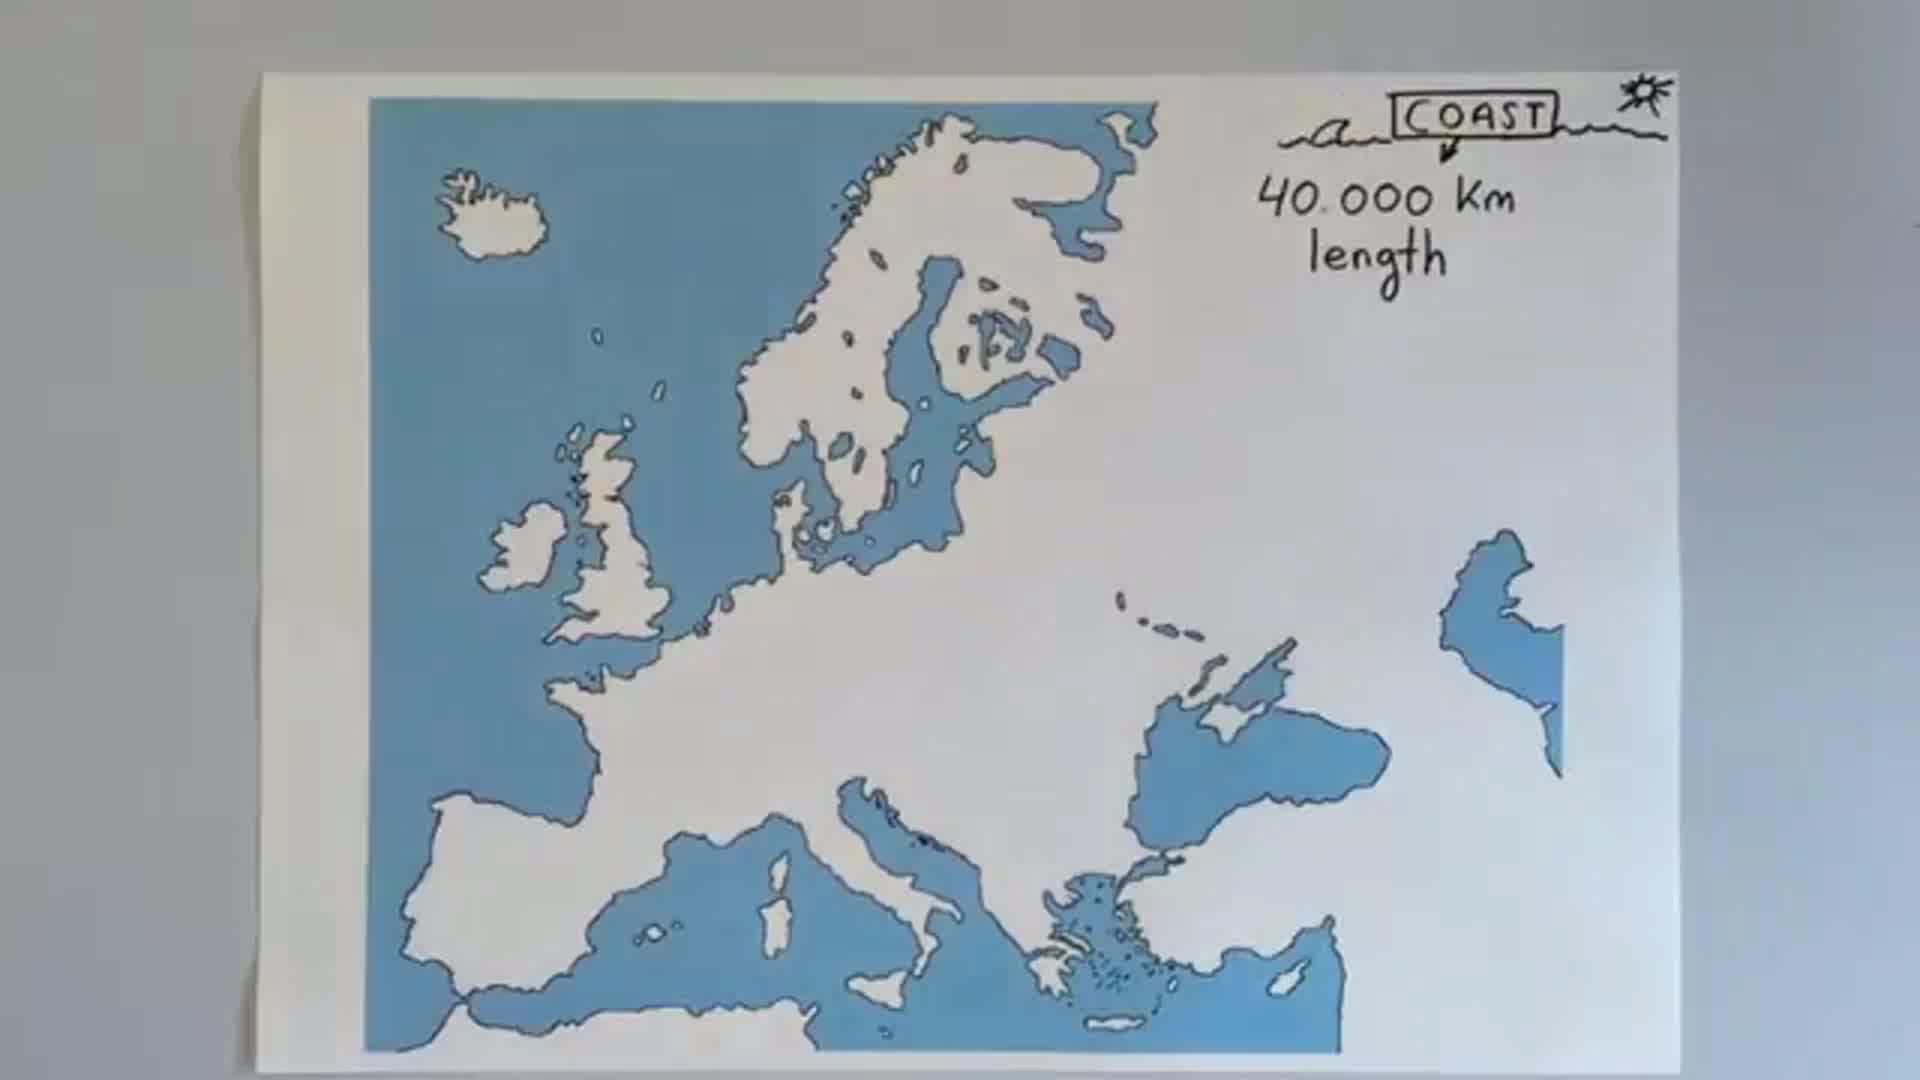 COAST
40.000 Km
length